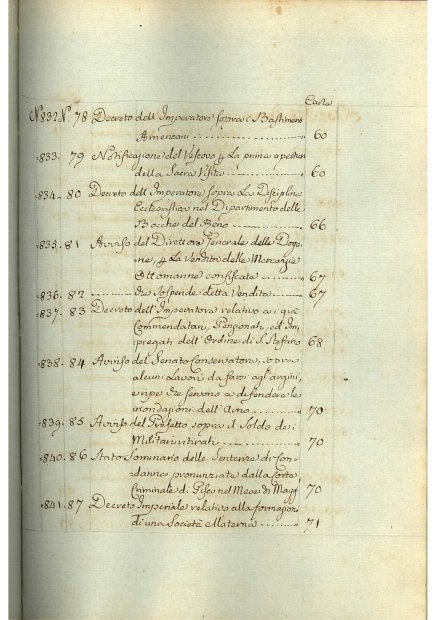 Carte
N° 832 N° 78 Decreto dell'Imperatore sopra i Bastimenti
Americani 60
833. 79 Notificazione del Vescovo p. la prima apertura
della Sacra Visita 60
834. 80 Decreto dell'Imperatore sopra la Disciplina
Ecclesiastica nel Dipartimento delle
Bocche del Reno 66
835. 81 Avviso del Direttore Generale delle Doga
ne, p. la Vendita delle Mercanzie
Ottomanne confiscate 67
836. 82 che sospende detta Vendita 67
837. 83 Decreto dell'Imperatore relativo a i già
Commendatari, Pensionati, ed Im
piegati dell'Ordine di S. Stefano 68
838. 84 Avviso del Senato Conservatore, sopra
alcuni Lavori da farsi agl'argini,
e ripe che servono a difendere le
inondazioni dell'Arno 70
839. 85 Avviso del Prefetto sopra il Soldo de i
Militari ritirati 70
840. 86 Stato Sommario delle Sentenze di Con-
danna pronunziate dalla Corte
Criminale di Pisa nel Mese di Magg. 70
841. 87 Decreto Imperiale relativo alla formazion
di una Società Materna 71